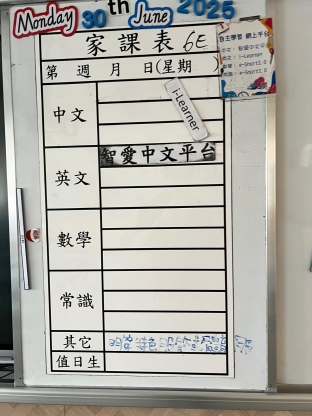 Monday 30th June 2025
家課表 6E
自主學習 網上平台
中文：智愛中文平台
英文：i-Learner
第 週 月 日(星期 )
i-Learner
中文
智愛中文平台
英文
數學
常識
其它
值日生